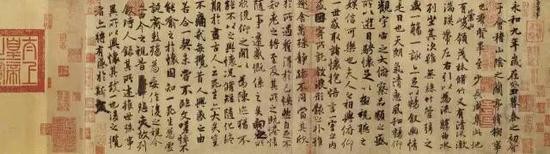 永和九年歲在癸丑暮春之初會
于會稽山陰之蘭亭脩稧事
也群賢畢至少長咸集此地
有崇山峻領茂林脩竹又有清流激
湍暎帶左右引以為流觴曲水
列坐其次雖無絲竹管弦之
盛一觴一詠亦足以暢敘幽情
是日也天朗氣清惠風和暢仰
觀宇宙之大俯察品類之盛
所以遊目騁懷足以極視聽之
娛信可樂也夫人之相與俯仰
一世或取諸懷抱悟言一室之內
或因寄所託放浪形骸之外雖
趣舍萬殊靜躁不同當其欣
於所遇暫得於己怏然自足不
知老之將至及其所之既惓情
隨事遷感慨係之矣向之所欣
俛仰之間以為陳迹猶不
能不以之興懷況脩短隨化終
期於盡古人云死生亦大矣豈
不痛哉每攬昔人興感之由
若合一契未嘗不臨文嗟悼不
能喻之於懷固知一死生為虛
誕齊彭殤為妄作後之視今
亦由今之視昔悲夫故列
敘時人錄其所述雖世殊事
異所以興懷其致一也後之攬
者亦將有感於斯文